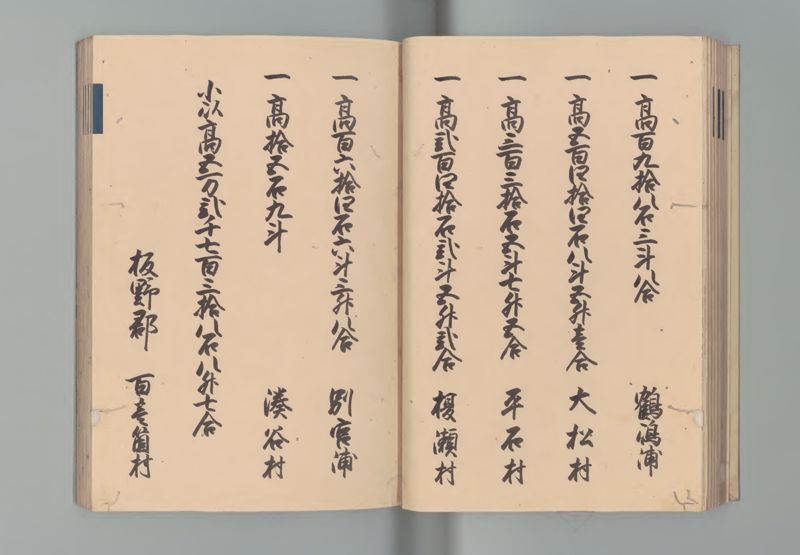 一 高百九拾八石三斗八合 鶴嶋浦
一 高五百四拾四石八斗五升壱合 大松村
一 高三百三拾石五斗七升五合 平石村
一 高弐百四拾石弐斗五升弐合 榎瀬村
一 高百六拾四石六斗三升八合 別宮浦
一 高拾五石九斗 湊谷村
小以高五万弐千七百三拾八石八升七合
板野郡 百壱箇村